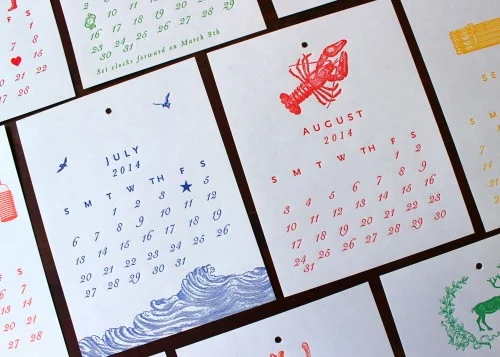 F S
7 8
21 22
28
Set clocks forward on March 9th
JULY
2014
S M T W TH F S
1 2 3 5
6 7 8 9 10 11 12
13 14 15 16 17 18 19
20 21 22 23 24 25 26
27 28 29 30 31
AUGUST
2014
S M T W TH F S
1 2
3 4 5 6 7 8 9
10 11 12 13 14 15 16
17 18 19 20 21 22 23
24 25 26 27 28 29 30
31
F S
6 7
13 14
20 21
27 28
SE
S M